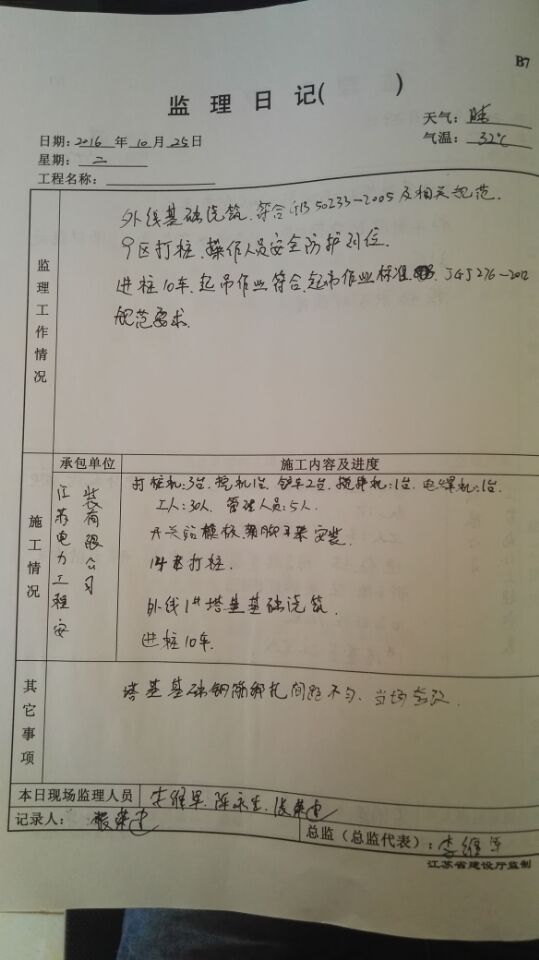 B7
监 理 日 记( )
天气: 晴
日期: 2016 年 10 月 25 日
气温: 32℃
星期: 二
工程名称:
监理工作情况
外线基础浇筑.符合GB 50233-2005及相关规范.
9区打桩.操作人员安全防护到位.
进桩10车.起吊作业符合.起吊作业标准 JGJ276-2012
规范要求.
施工情况
承包单位
施工内容及进度
江苏电力工程安
装有限公司
打桩机:3台.挖机1台.铲车2台.搅拌机:1台.电焊机:1台.
工人:30人. 管理人员:5人.
开关站模板架脚手架安装.
14#打桩.
外线1#塔基基础浇筑.
进桩10车.
其它事项
塔基基础钢筋绑扎间距不匀.当场整改.
本日现场监理人员
记录人:
总监(总监代表):
江苏省建设厅监制